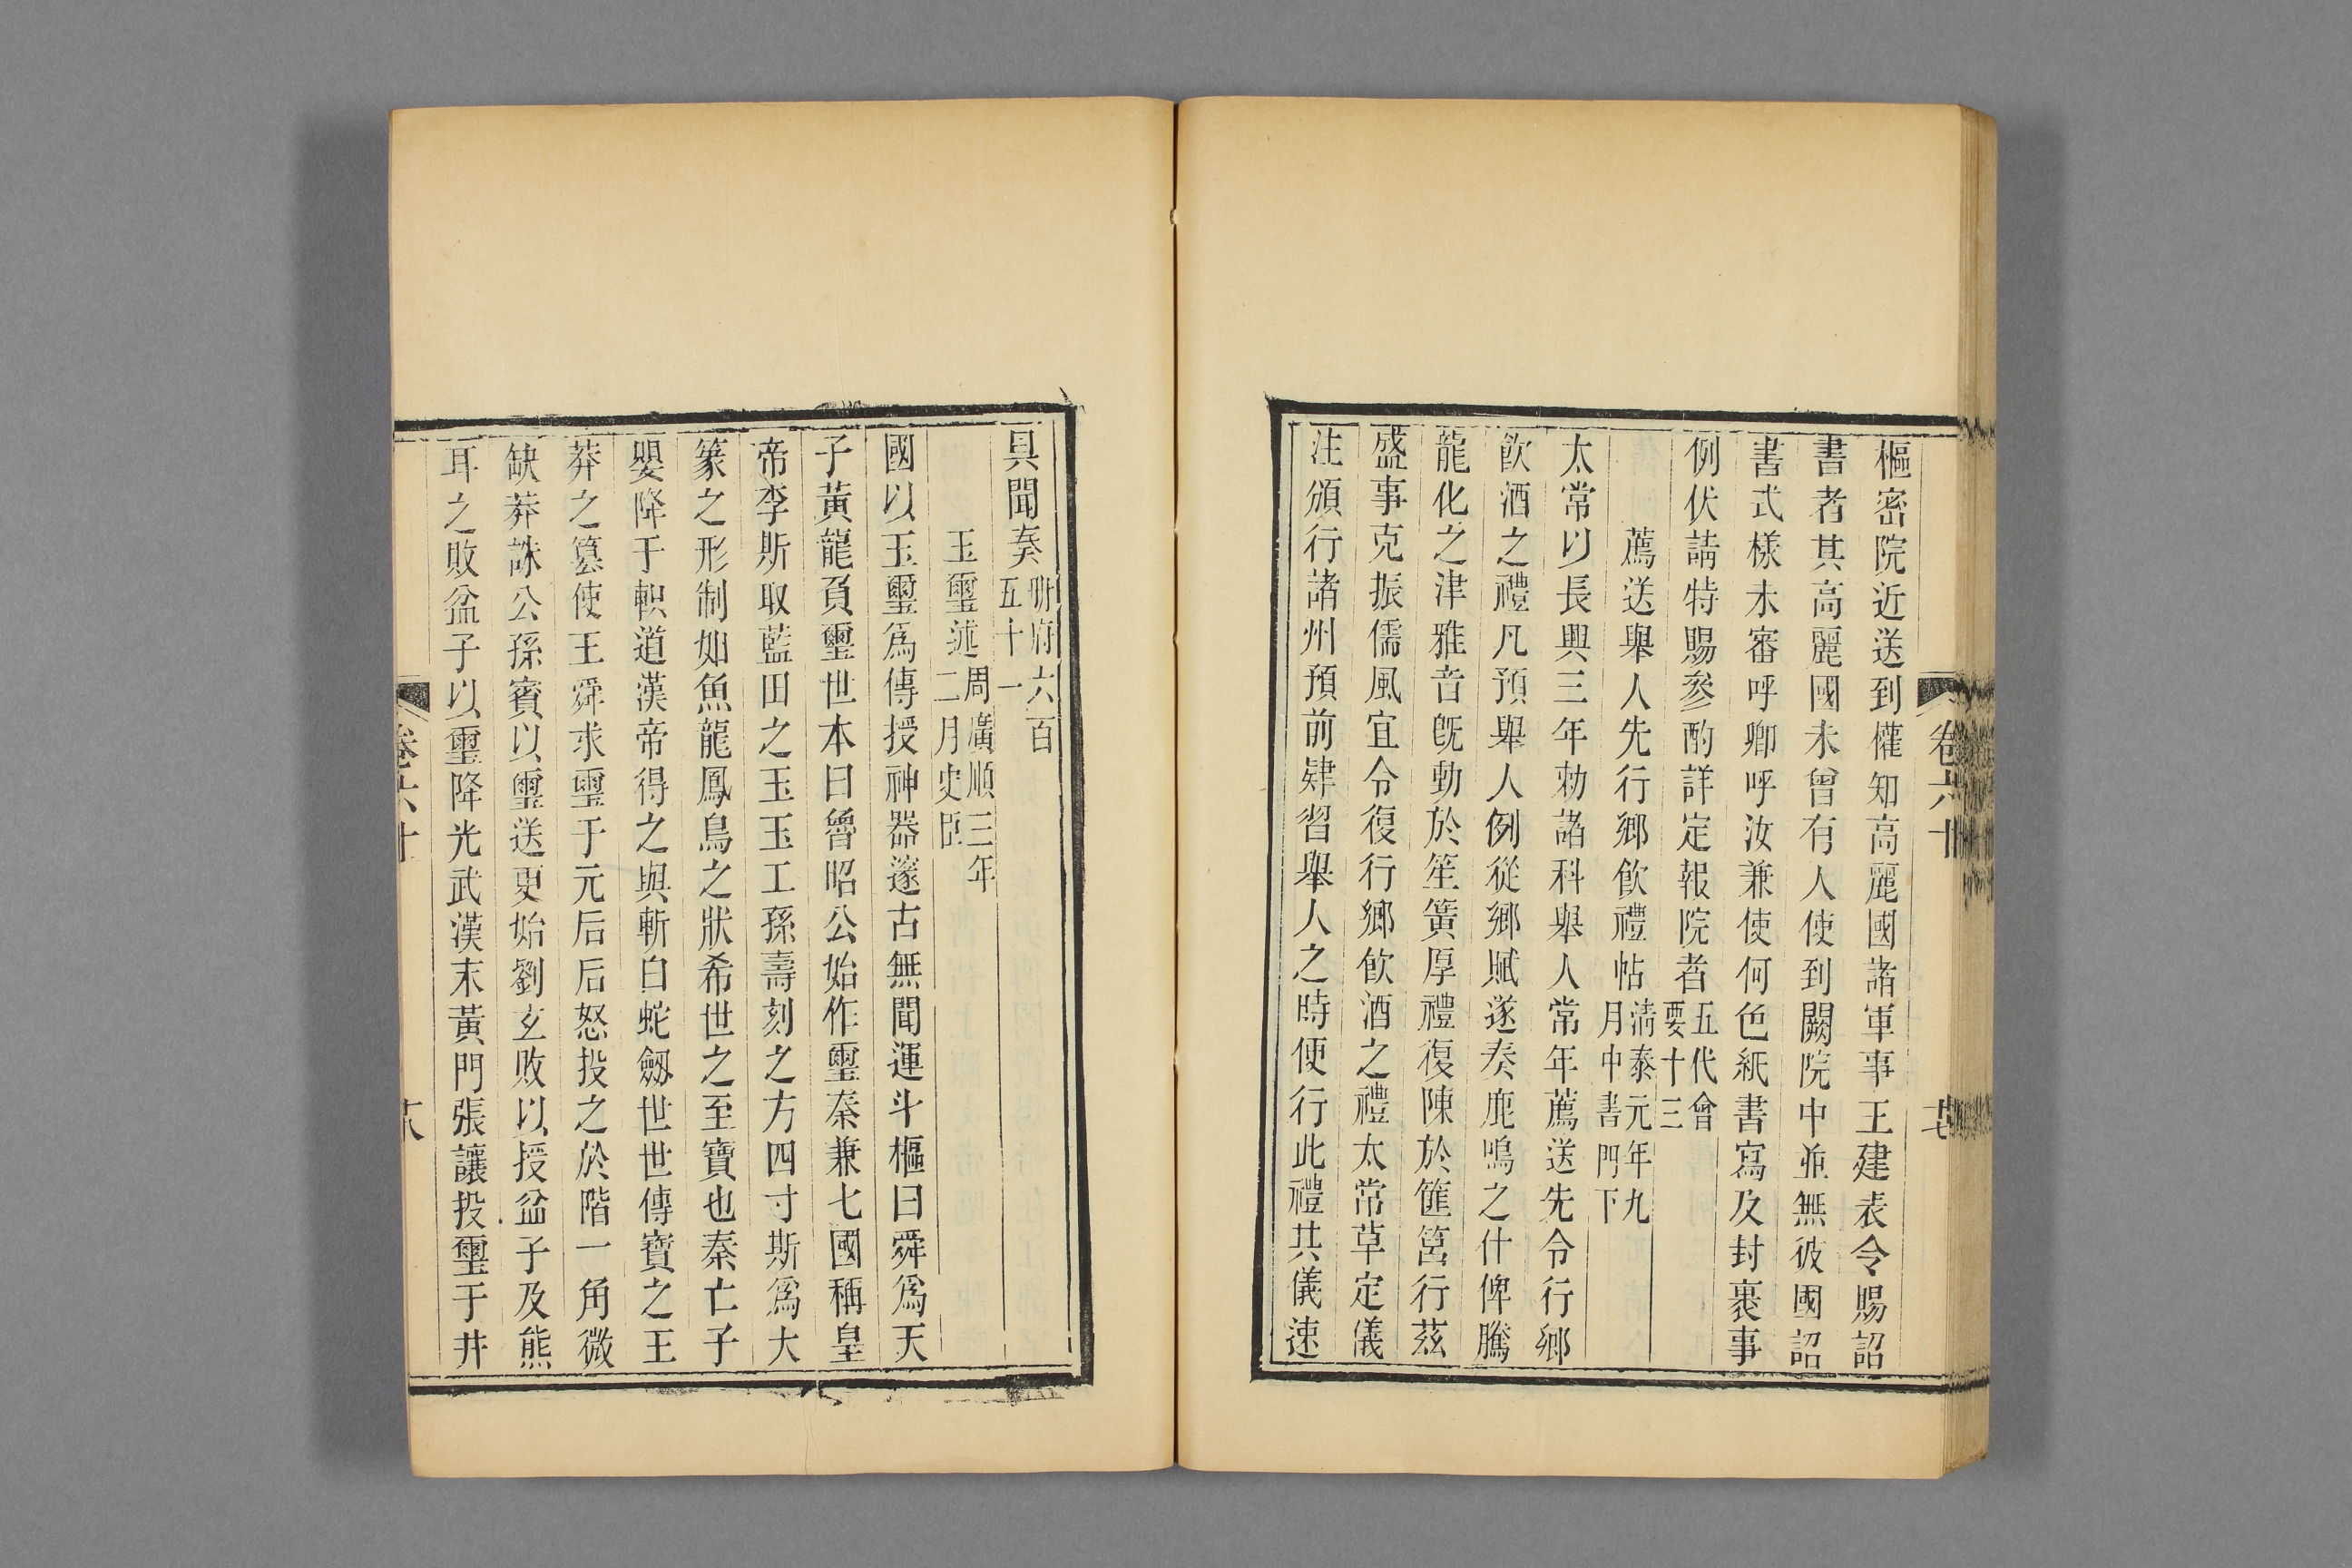 樞密院近送到權知高麗國諸軍事王建表令賜詔
書者其高麗國未曾有人使到闕院中並無彼國詔
書式樣未審呼卿呼汝兼使何色紙書寫及封裹事
例伏請特賜參酌詳定報院者五代會
要十三
薦送舉人先行鄉飲禮帖清泰元年九
月中書門下
太常以長興三年勑諸科舉人常年薦送先令行鄉
飲酒之禮凡預舉人例從鄉賦遂奏鹿鳴之什俾騰
龍化之津雅音旣動於笙簧厚禮復陳於篚筥行茲
盛事克振儒風宜令復行鄉飲酒之禮太常草定儀
注頒行諸州預前肄習舉人之時便行此禮其儀速
卷六十
具聞奏册府六百
五十一
玉璽述周廣順三年
二月史臣
國以玉璽爲傳授神器遂古無聞運斗樞曰舜爲天
子黃龍負璽世本曰魯昭公始作璽秦兼七國稱皇
帝李斯取藍田之玉玉工孫壽刻之方四寸斯爲大
篆之形制如魚龍鳳鳥之狀希世之至寶也秦亡子
嬰降于軹道漢帝得之與斬白蛇劔世世傳寶之王
莽之簒使王舜求璽于元后后怒投之於階一角微
缺莽誅公孫賓以璽送更始劉玄敗以授盆子及熊
耳之敗盆子以璽降光武漢末黃門張讓投璽于井
卷六十